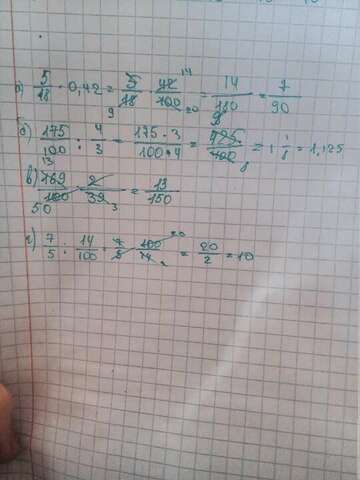 а) 5/18 · 0,42 = 5/18 · 42/100 = 14/180 = 7/90
б) 175/100 : 4/3 = 175·3/100·4 = 525/400 = 1 1/8 = 1,125
в) 169/100 · 2/39 = 13/150
г) 7/5 : 14/100 = 7/5 · 100/14 = 20/2 = 10